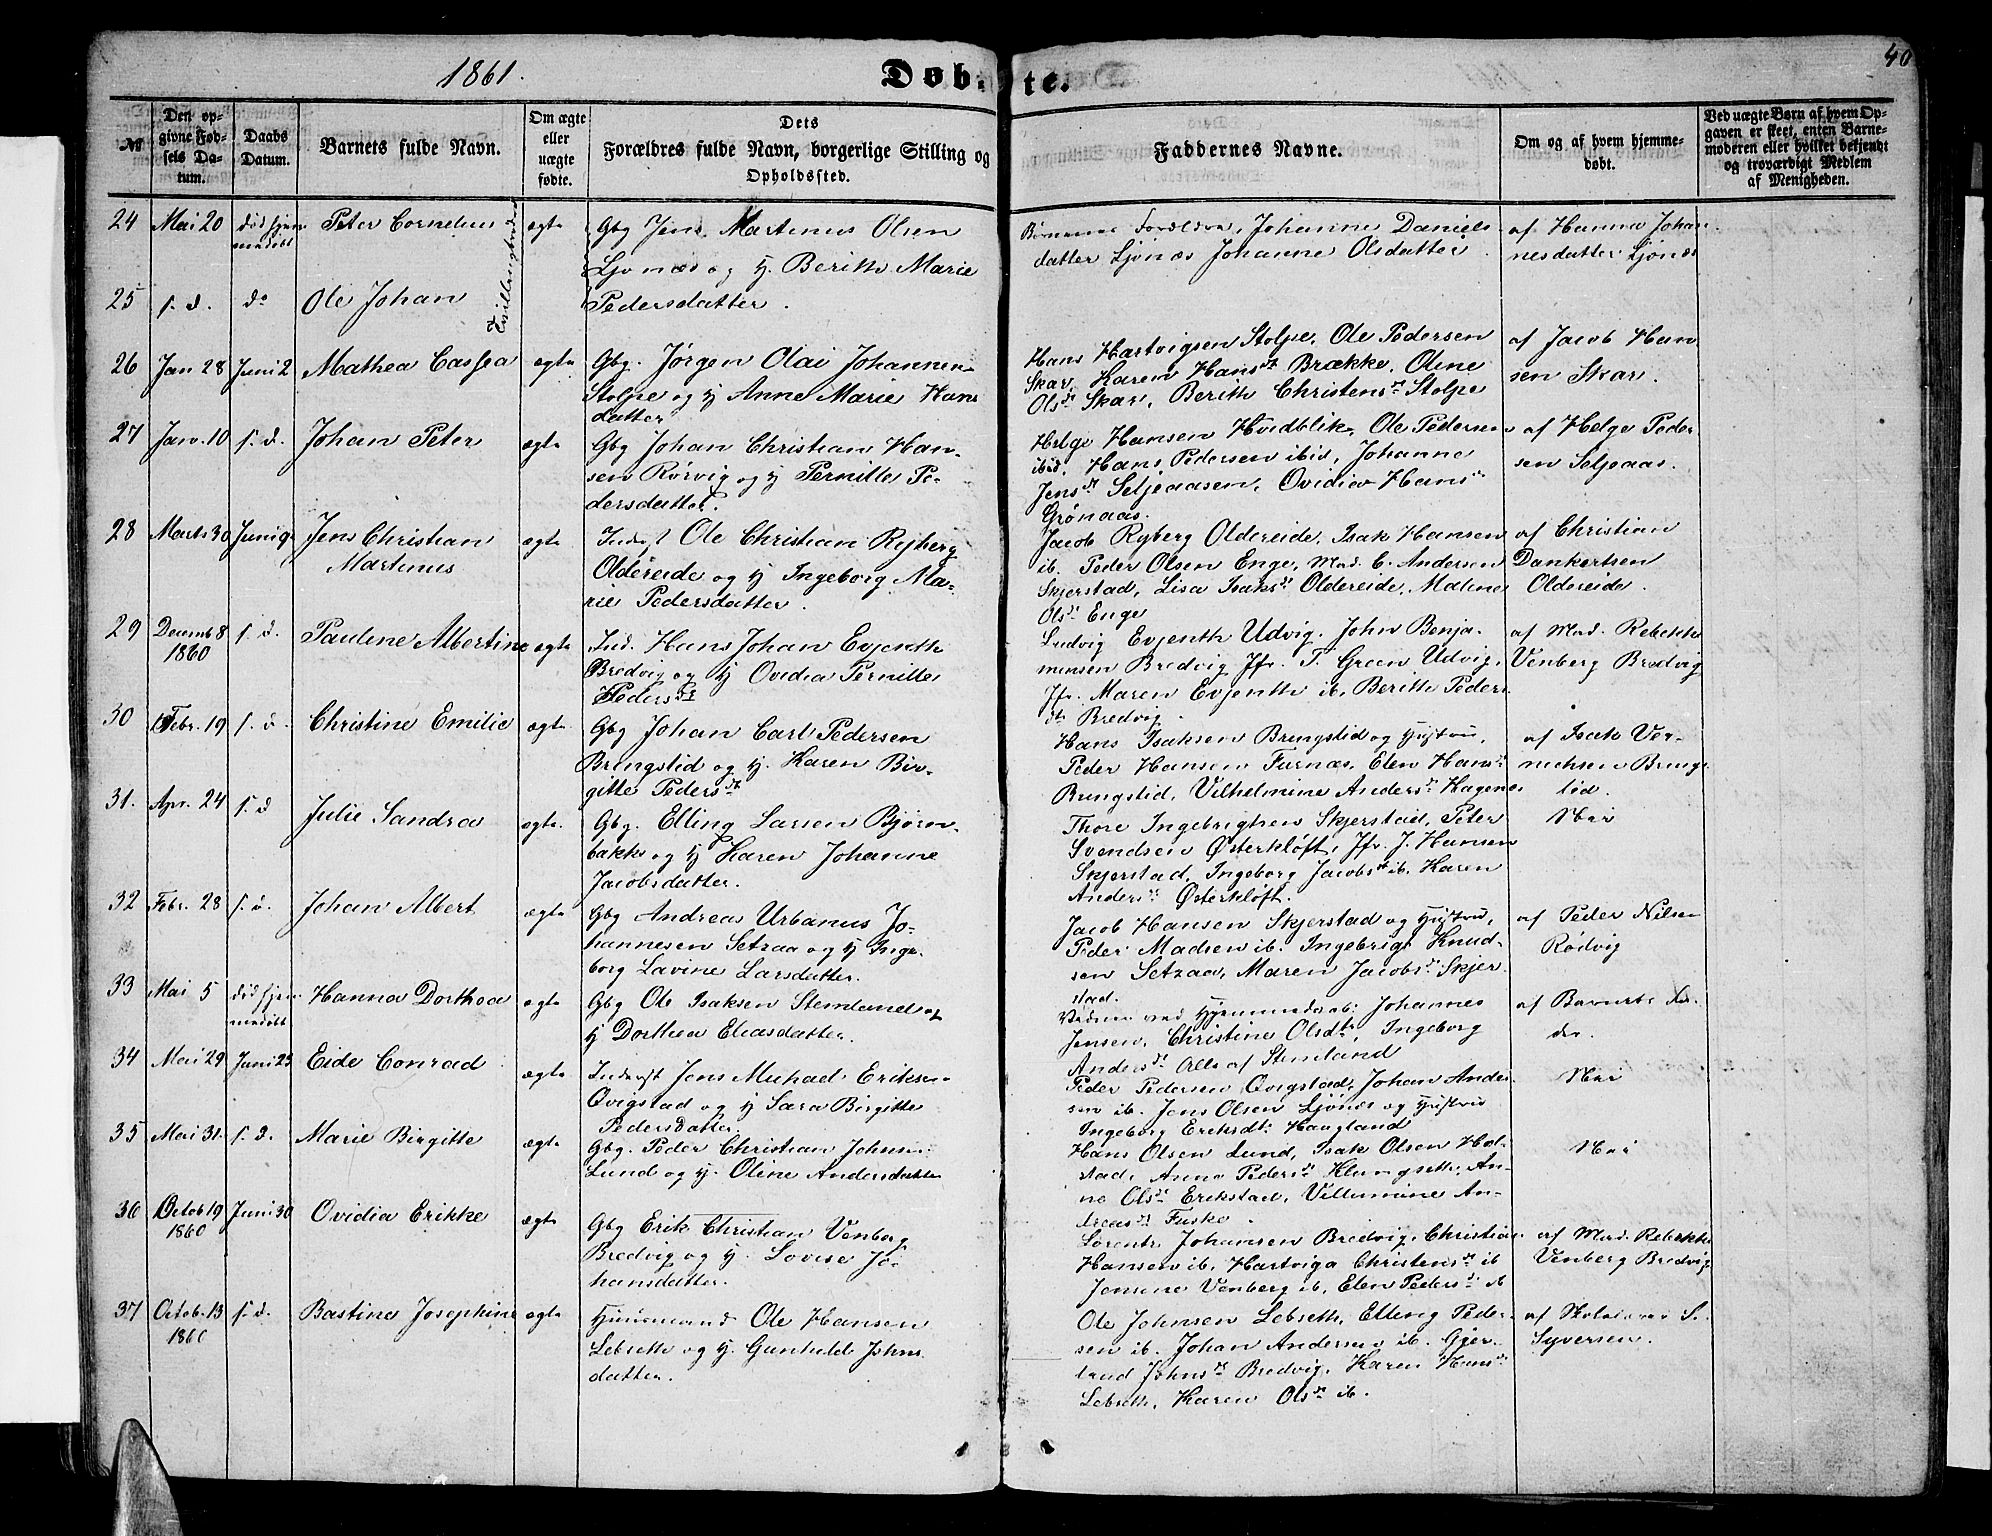 1861.
Döb-
te.
40
№
Den op-
givne Fød-
sels Da-
tum.
Daabs
Datum.
Barnets fulde Navn.
Om ægte
eller
uægte
fødte.
Dets
Forældres fulde Navn, borgerlige Stilling og
Opholdssted.
Faddernes Navne.
Om og af hvem hjemme-
døbt.
Ved uægte Børn af hvem Op-
gaven er skeet, enten Barne-
moderen eller hvilket bekjendt
og troværdigt Medlem
af Menigheden.
24 Mai 20 død hjem
medöbt Peter Cornelius ægte Gbg Jens Martinus Olsen
Ljönæs og h Berith Marie
Pedersdatter.
Børnenes Forældre, Johanne Daniels
datter Ljönæs Johanne Olsdatter
af Hanna Johan
nesdatter Ljönæs
25 s. d. do Ole Johan
Tvillingbrødre
26 Jan 28 Juni 2 Mathea Cassea ægte Gbg. Jörgen Olai Johannen
Stolpe og h Anne Marie Hans
datter
Hans Hartvigsen Stolpe, Ole Pedersen
Skar, Karen Hansdt Brække, Oline
Olsdt Skar, Berith Christensdt Stolpe
af Jacob Han
sen Skar.
27 Janv. 10 s. d. Johan Peter ægte Gbg Johan Christian Han-
sen Rörvig og h Pernille Pe-
dersdatter.
Helge Hansen Hvidblik, Ole Pedersen
ibid, Hans Pedersen ibid, Johanna
Jensdt Seljeaasen, Ovidia Hansdt
Grönaas.
af Helge Peder
sen Seljeaas.
28 Marts 30 Juni 9 Jens Christian
Martinus ægte Inderst Ole Christian Ryberg
Oldereide og h Ingeborg Ma-
rie Pedersdatter.
Jacob Ryberg Oldereide, Isak Hansen
ib. Peder Olsen Enge, Mad. C. Andersen
Skjerstad, Lisa Isaksdt Oldereide, Malene
Olsdt Enge
af Christian
Dankertsen
Oldereide.
29 Decemb 8
1860 s. d. Paulene Albertine ægte Ind. Hans Johan Evjenth
Bredvig og h Ovidia Pernille
Pedersdt
Ludvig Evjenth Udvig, John Benja-
minsen Bredvig Jfr. T. Green Udvig,
Jfr. Maren Evjenth ib, Berith Peders
dt Bredvig.
af Mad. Rebekka
Venberg Bredvig
30 Febr. 19 s. d. Christine Emilie ægte Gbg Johan Carl Pedersen
Bringstid og h. Karen Bir-
gitte Pedersdt
Hans Isaksen Bringstid og Hustru,
Peder Hansen Furnæs, Elen Hansdt
Bringstid, Vilhelmine Andersdt Hagenes
af Isak Ver-
nichsen Brings
tid.
31. Apr. 24 s. d Julie Sandra ægte. Gbg. Elling Larsen Bjørn-
bakk og h Karen Johanne
Jacobsdatter.
Thore Ingebrigtsen Skjerstad, Peter
Svendsen Østerkløft, Jfr. J. Hansen
Skjerstad, Ingeborg Jacobsdt ib. Karen
Andersdt Østerkløft.
Nei
32 Febr. 28 s. d. Johan Albert ægte Gbg Andreas Urbanus Jo-
hannesen Setzaa og h Inge-
borg Lavine Larsdatter.
Jacob Hansen Skjerstad og Hustru,
Peder Madsen ib. Ingebrigt Knud-
sen Setzaa, Maren Jacobsdt Skjer
stad.
af Peder Nilsen
Rödvig
33 Mai 5 död hjem
medöbt Hanna Dorthea ægte Gbg Ole Isaksen Stemland og
h Dorthea Eliasdatter.
Vidner ved Hjemmedaab: Johannes
Jensen, Christine Olsdtr, Ingeborg
Andersdt Alle af Stemland
af Barnets Fa-
der.
34 Mai 29 Juni 23 Eide Conrad ægte Inderst Jens Michael Eriksen
Qvigstad og h Sara Birgitte
Pedersdatter.
Peder Pedersen Qvigstad, Johan Ander
sen ib. Jens Olsen Ljönæs og Hustru
Ingeborg Eriksdtr Haugland
Nei
35 Mai 31. s. d. Marie Birgitte ægte Gbg. Peder Christian Johnsen
Lund og h. Oline Andersdatter
Hans Olsen Lund, Isak Olsen Hol-
stad, Anne Pedersdt Klungseth, An-
ne Olsdt Erikstad, Villumine An-
dreasdt Fuske.
Nei
36 Octob 19
1860 Juni 30 Ovidia Erikke ægte Gbg Erik Christian Venberg
Bredvig og h. Lovise Jo-
hansdatter.
Lorents Johansen Bredvig, Christian
Hansen ib. Hartviga Christensdt ib
Jensine Venberg ib, Elen Pedersdt ib
af Mad. Rebekka
Venberg Bredvig
37 Octob. 13
1860 s. d. Bastine Josephine ægte Huusmand Ole Hansen
Lebseth og h. Gunhild Johns
datter.
Ole Johnsen Lebseth, Elling Peder-
sen ib. Johan Andersen ib. Gjer-
trud Johnsdt Bredvig, Karen Hansdt
Lebseth, Karen Olsdt ib.
af Skolelærer S.
Syversen.